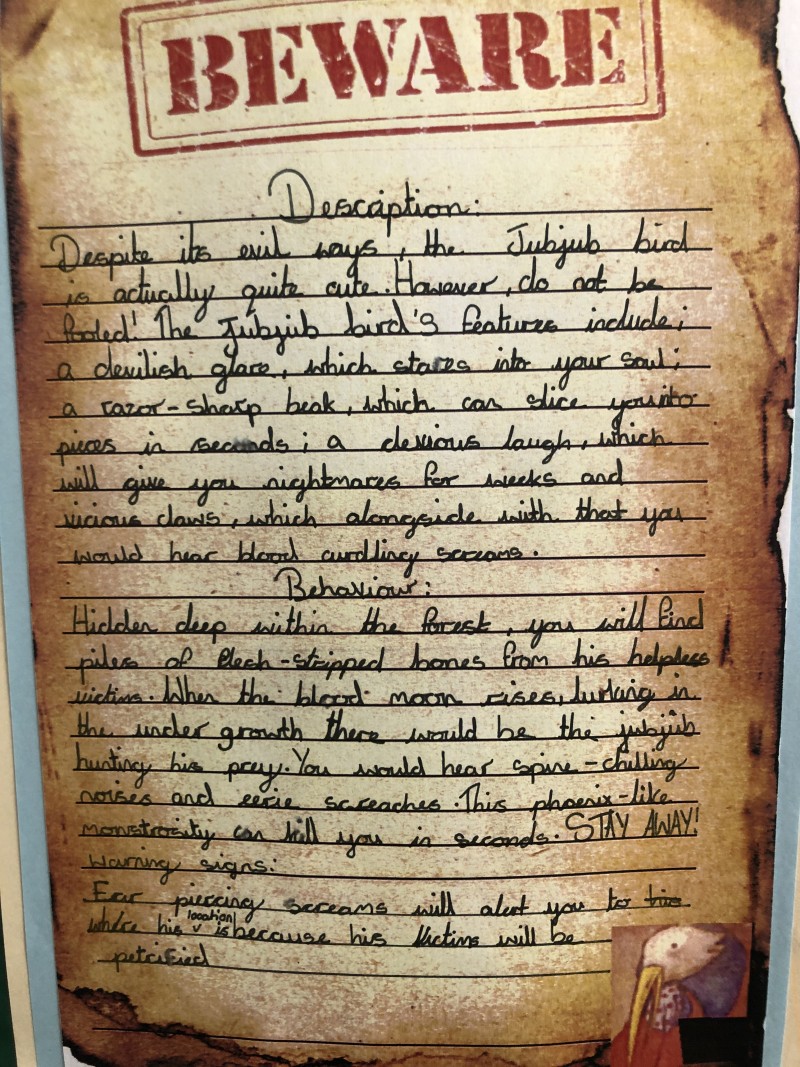 BEWARE
Description:
Despite its evil ways, the Jubjub bird
is actually quite cute. However, do not be
fooled! The Jubjub bird's features include;
a devilish glare, which stares into your soul;
a razor-sharp beak, which can slice you into
pieces in seconds; a devious laugh, which
will give you nightmares for weeks and
vicious claws, which alongside with that you
would hear blood curdling screams.
Behaviour:
Hidden deep within the forest, you will find
piles of flesh-stripped bones from his helpless
victims. When the blood moon rises, lurking in
the under growth there would be the jubjub
hunting his prey. You would hear spine-chilling
noises and eerie screaches. This phoenix-like
monstrosity can kill you in seconds. STAY AWAY!
Warning signs:
Ear piercing screams will alert you to his
where his location is because his victims will be
petrified